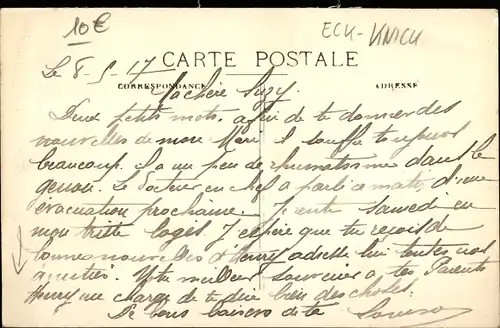 10€
ECK-KNICK
CARTE POSTALE
CORRESPONDANCE
ADRESSE
Le 8-5-17
Ma chère Suzy.
Deux petits mots. afin de te donner des
nouvelles de mon il souffre toujours
beaucoup. il a un peu de rhumatisme dans le
genou. Le docteur en chef a parlé ce matin d'une
évacuation prochaine. samedi en
mon J'espère que tu reçois de
bonnes nouvelles d'Henry adresse lui toutes nos
amitiés. meilleur souvenir à tes Parents
Henry me charge de te dire bien des choses.
De bons baisers de ta